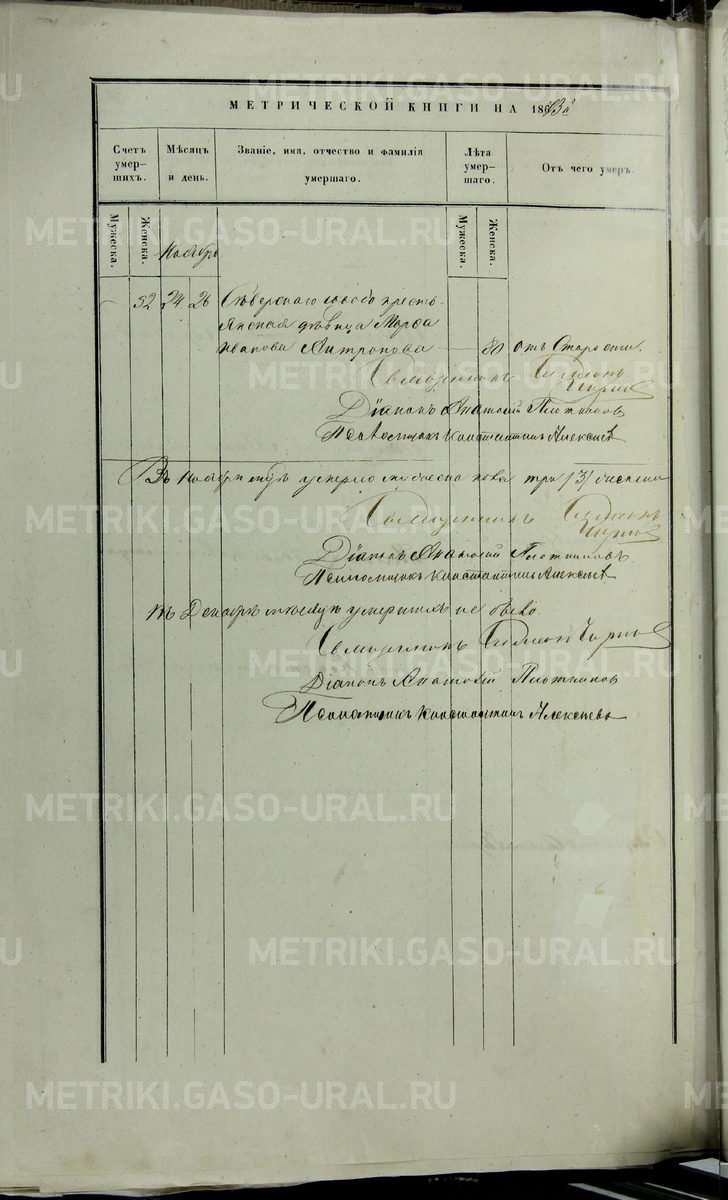 МЕТРИЧЕСКОЙ КНИГИ НА 1873й
Счетъ умер-шихъ.
Мѣсяцъ и день.
Званіе, имя, отчество и фамилія умершаго.
Лѣта умер-шаго.
Отъ чего умеръ.
Мужеска.
Женска.
Ноябрь
Мужеска.
Женска.
52 24 26 Сѣверскаго завода кресть-
янская дѣвица Марѳа
Иванова Антропова — 80 отъ Старости.
Священникъ
Діаконъ Анатолій Плотниковъ
Псаломщикъ Константинъ Алексѣевъ
Въ Ноябрѣ умерло женска пола три /3/
Священникъ
Діаконъ Анатолій Плотниковъ
Псаломщикъ Константинъ Алексѣевъ
Въ Декабрѣ мѣсяцѣ умершихъ не было
Священникъ
Діаконъ Анатолій Плотниковъ
Псаломщикъ Константинъ Алексѣевъ
METRIKI.GASO-URAL.RU